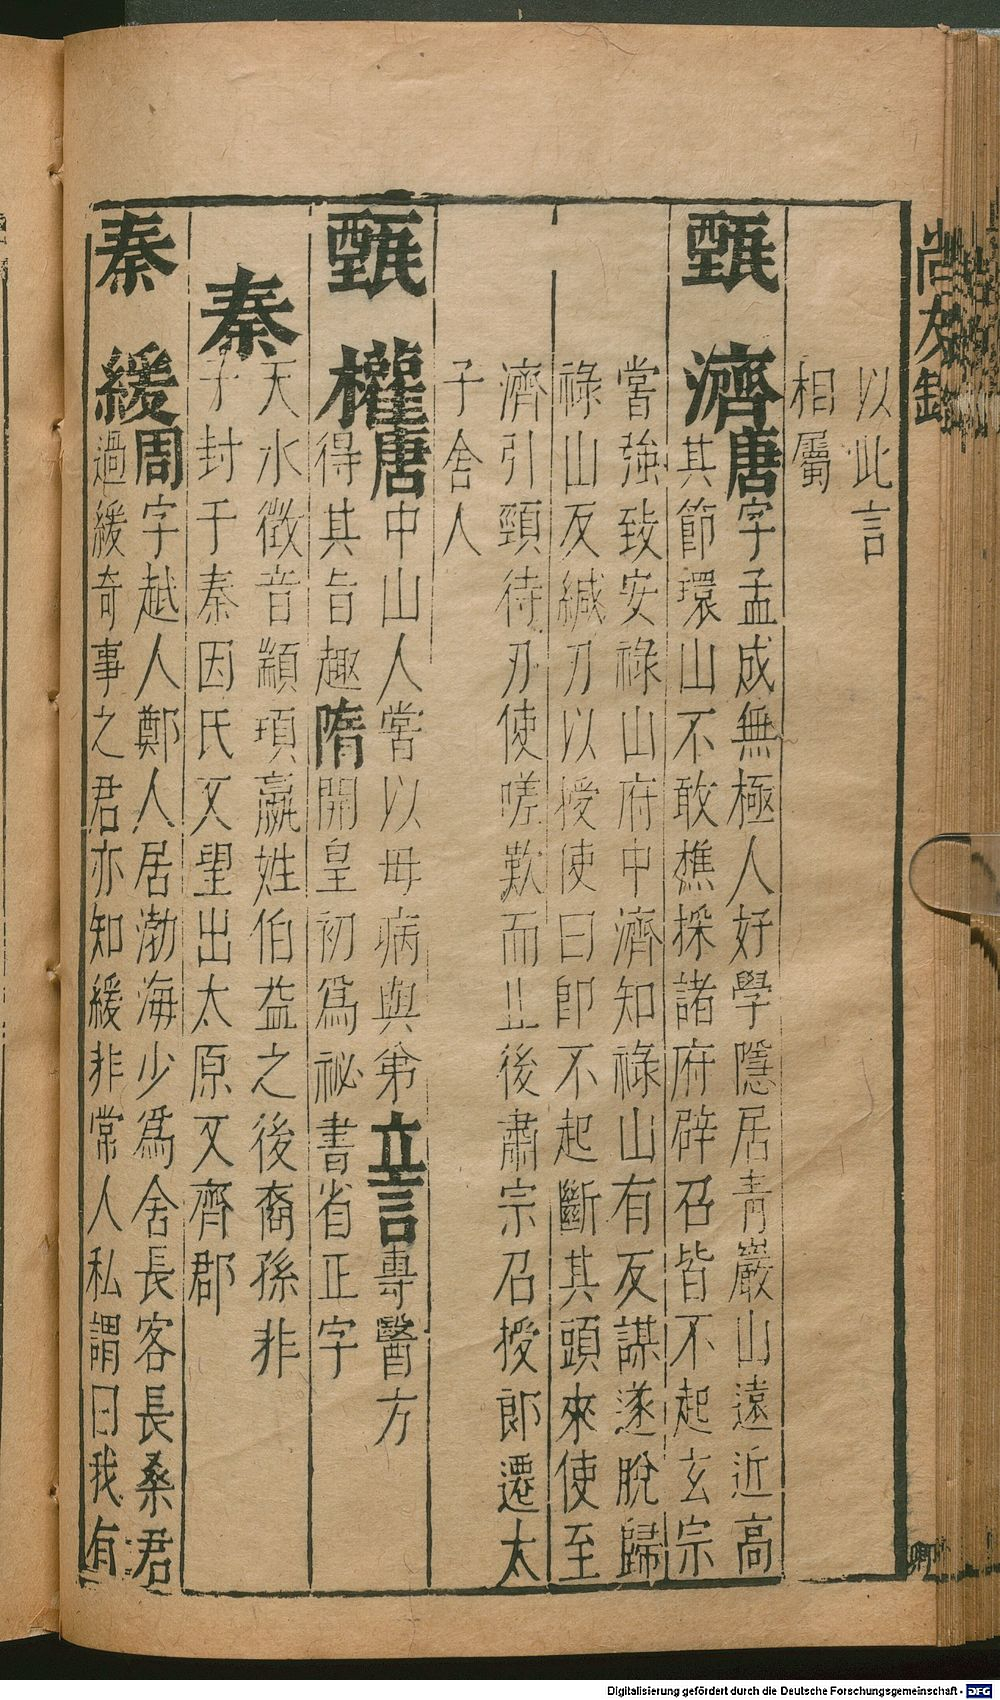 尚友錄
以此言
相屬
甄濟唐字孟成無極人好學隱居青巖山遠近高
其節環山不敢樵採諸府辟召皆不起玄宗
嘗強致安祿山府中濟知祿山有反謀遂脫歸
祿山反緘刀以授使曰即不起斷其頭來使至
濟引頸待刃使嗟歎而止後肅宗召授郎遷太
子舍人
甄權唐中山人嘗以母病與弟立言專醫方
得其旨趣隋開皇初爲祕書省正字
秦
天水徵音顓頊嬴姓伯益之後裔孫非
子封于秦因氏又望出太原又齊郡
秦緩周字越人鄭人居渤海少爲舍長客長桑君
過緩奇事之君亦知緩非常人私謂曰我有
Digitalisierung gefördert durch die Deutsche Forschungsgemeinschaft - DFG